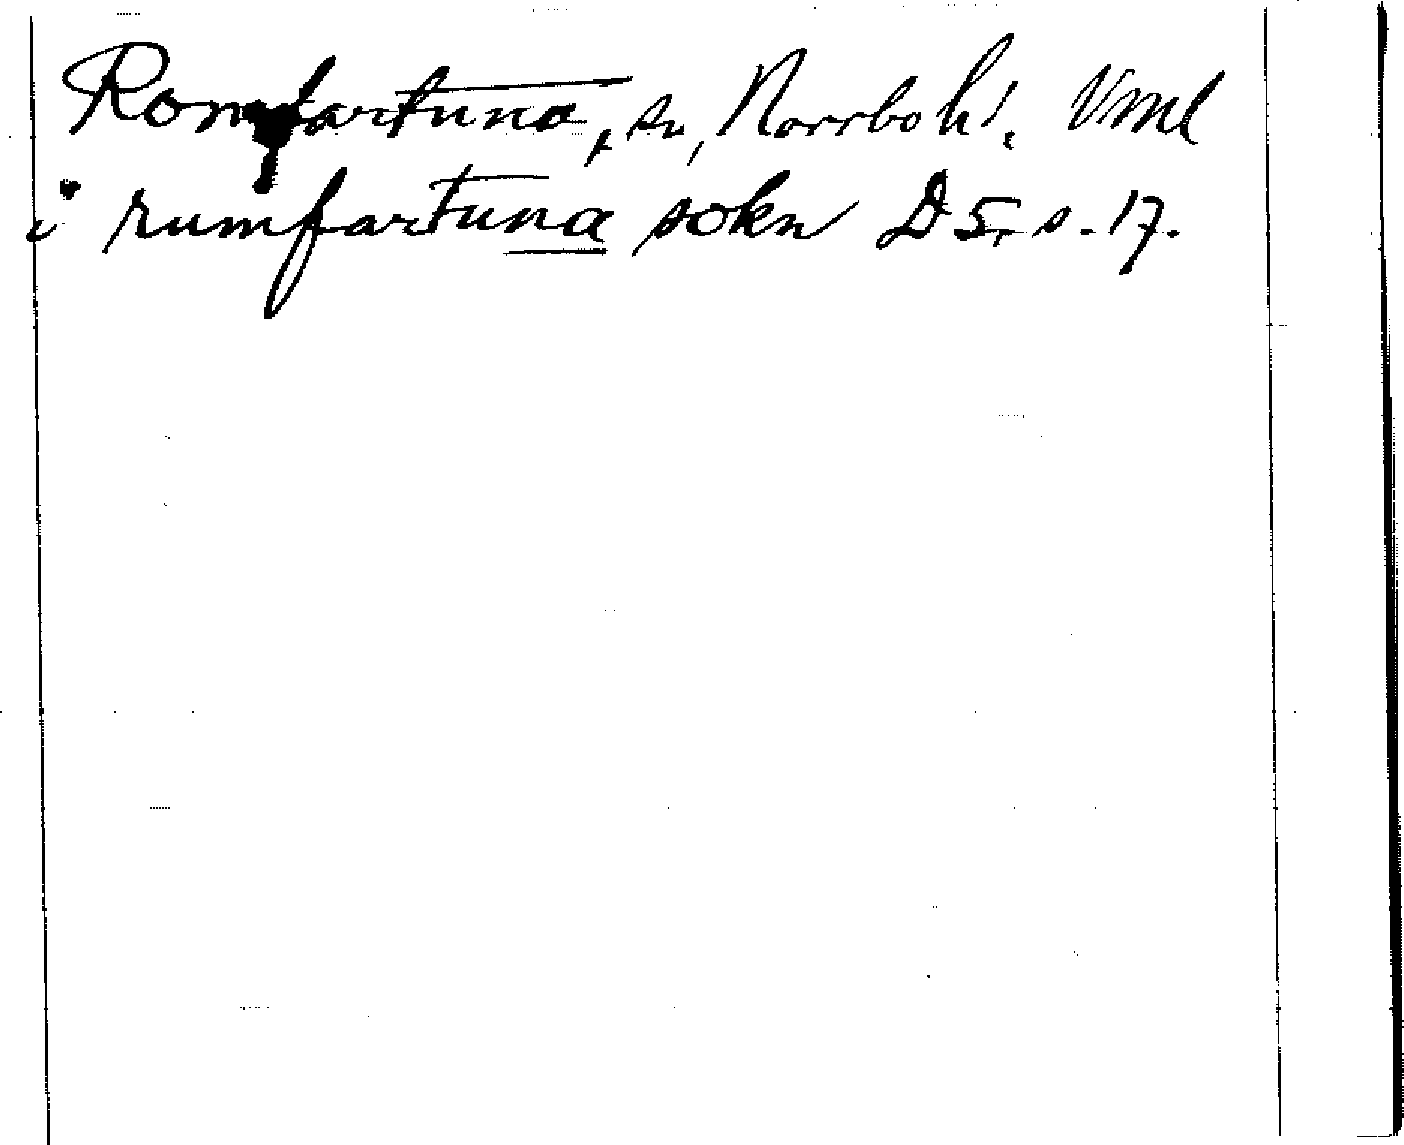 Romfartuna, sn, Norrbo hd. Vml
i rumfartuna sokn D5, s. 17.